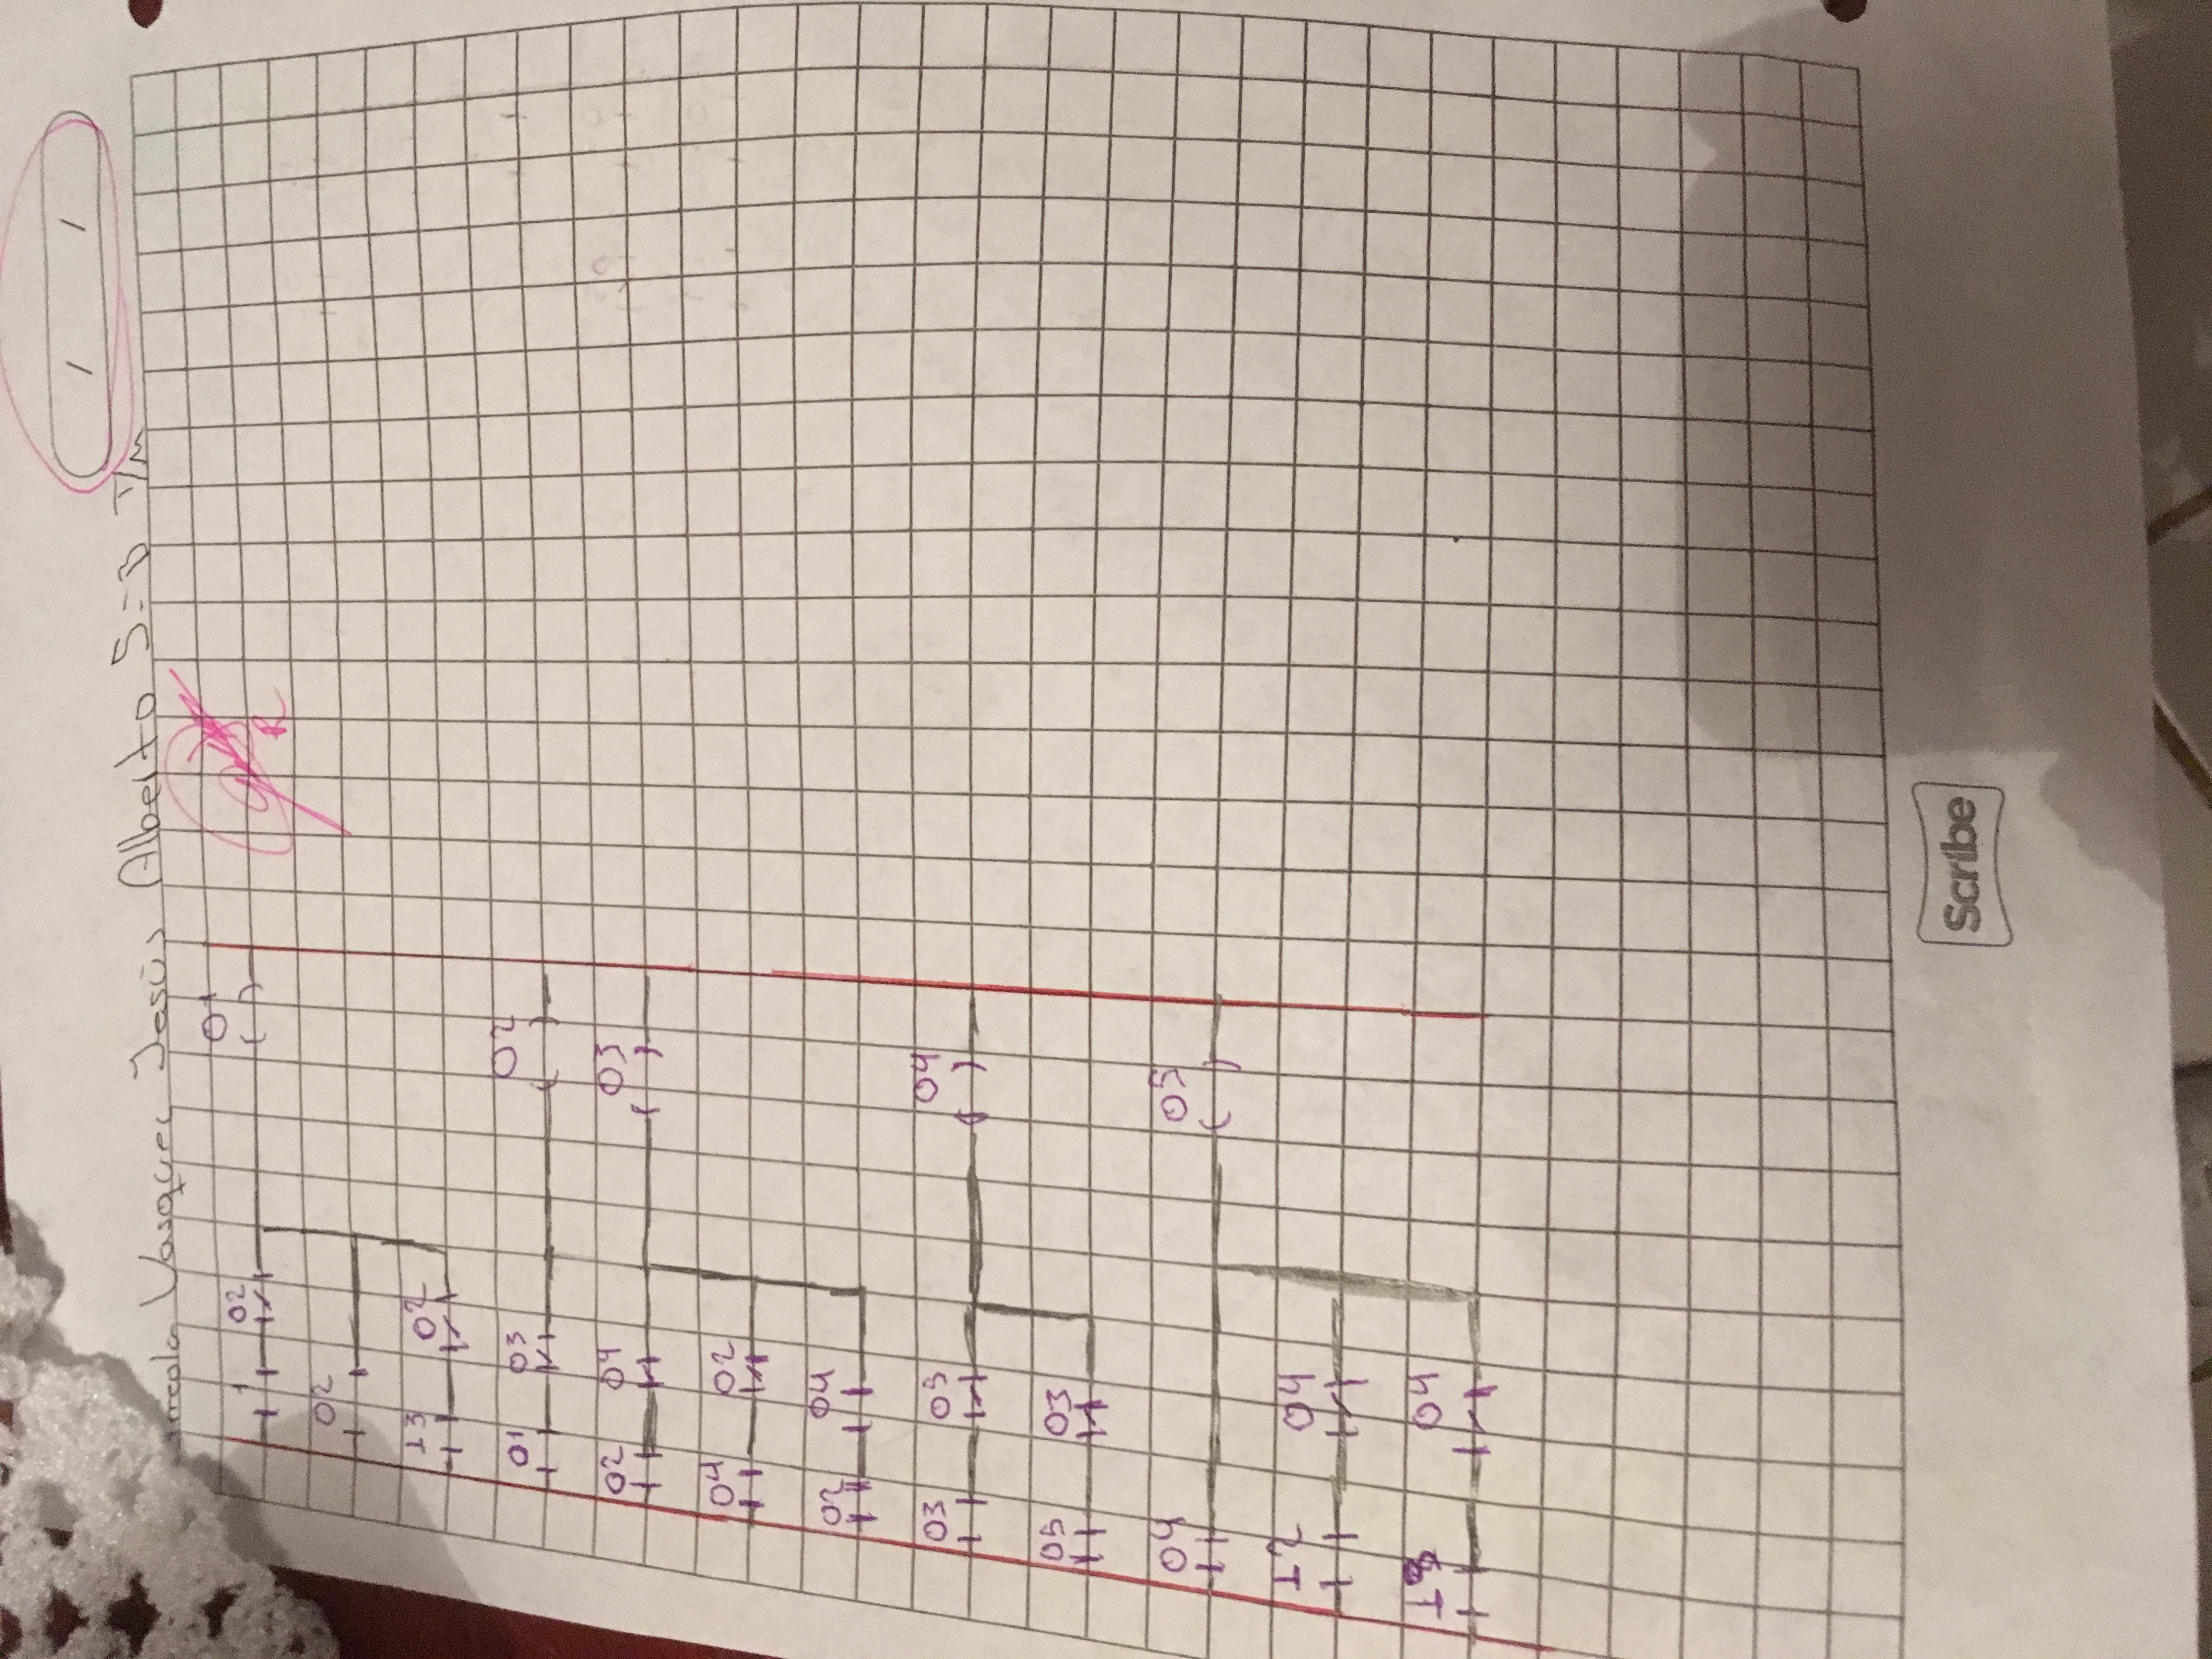 Vasquez Jesús Alberto 5=B T/M
1 02 01
02
13 02
01 03 02
02 04 03
04 02
02 04
03 05 04
05 03
04 05
12 04
13 04
R
Scribe